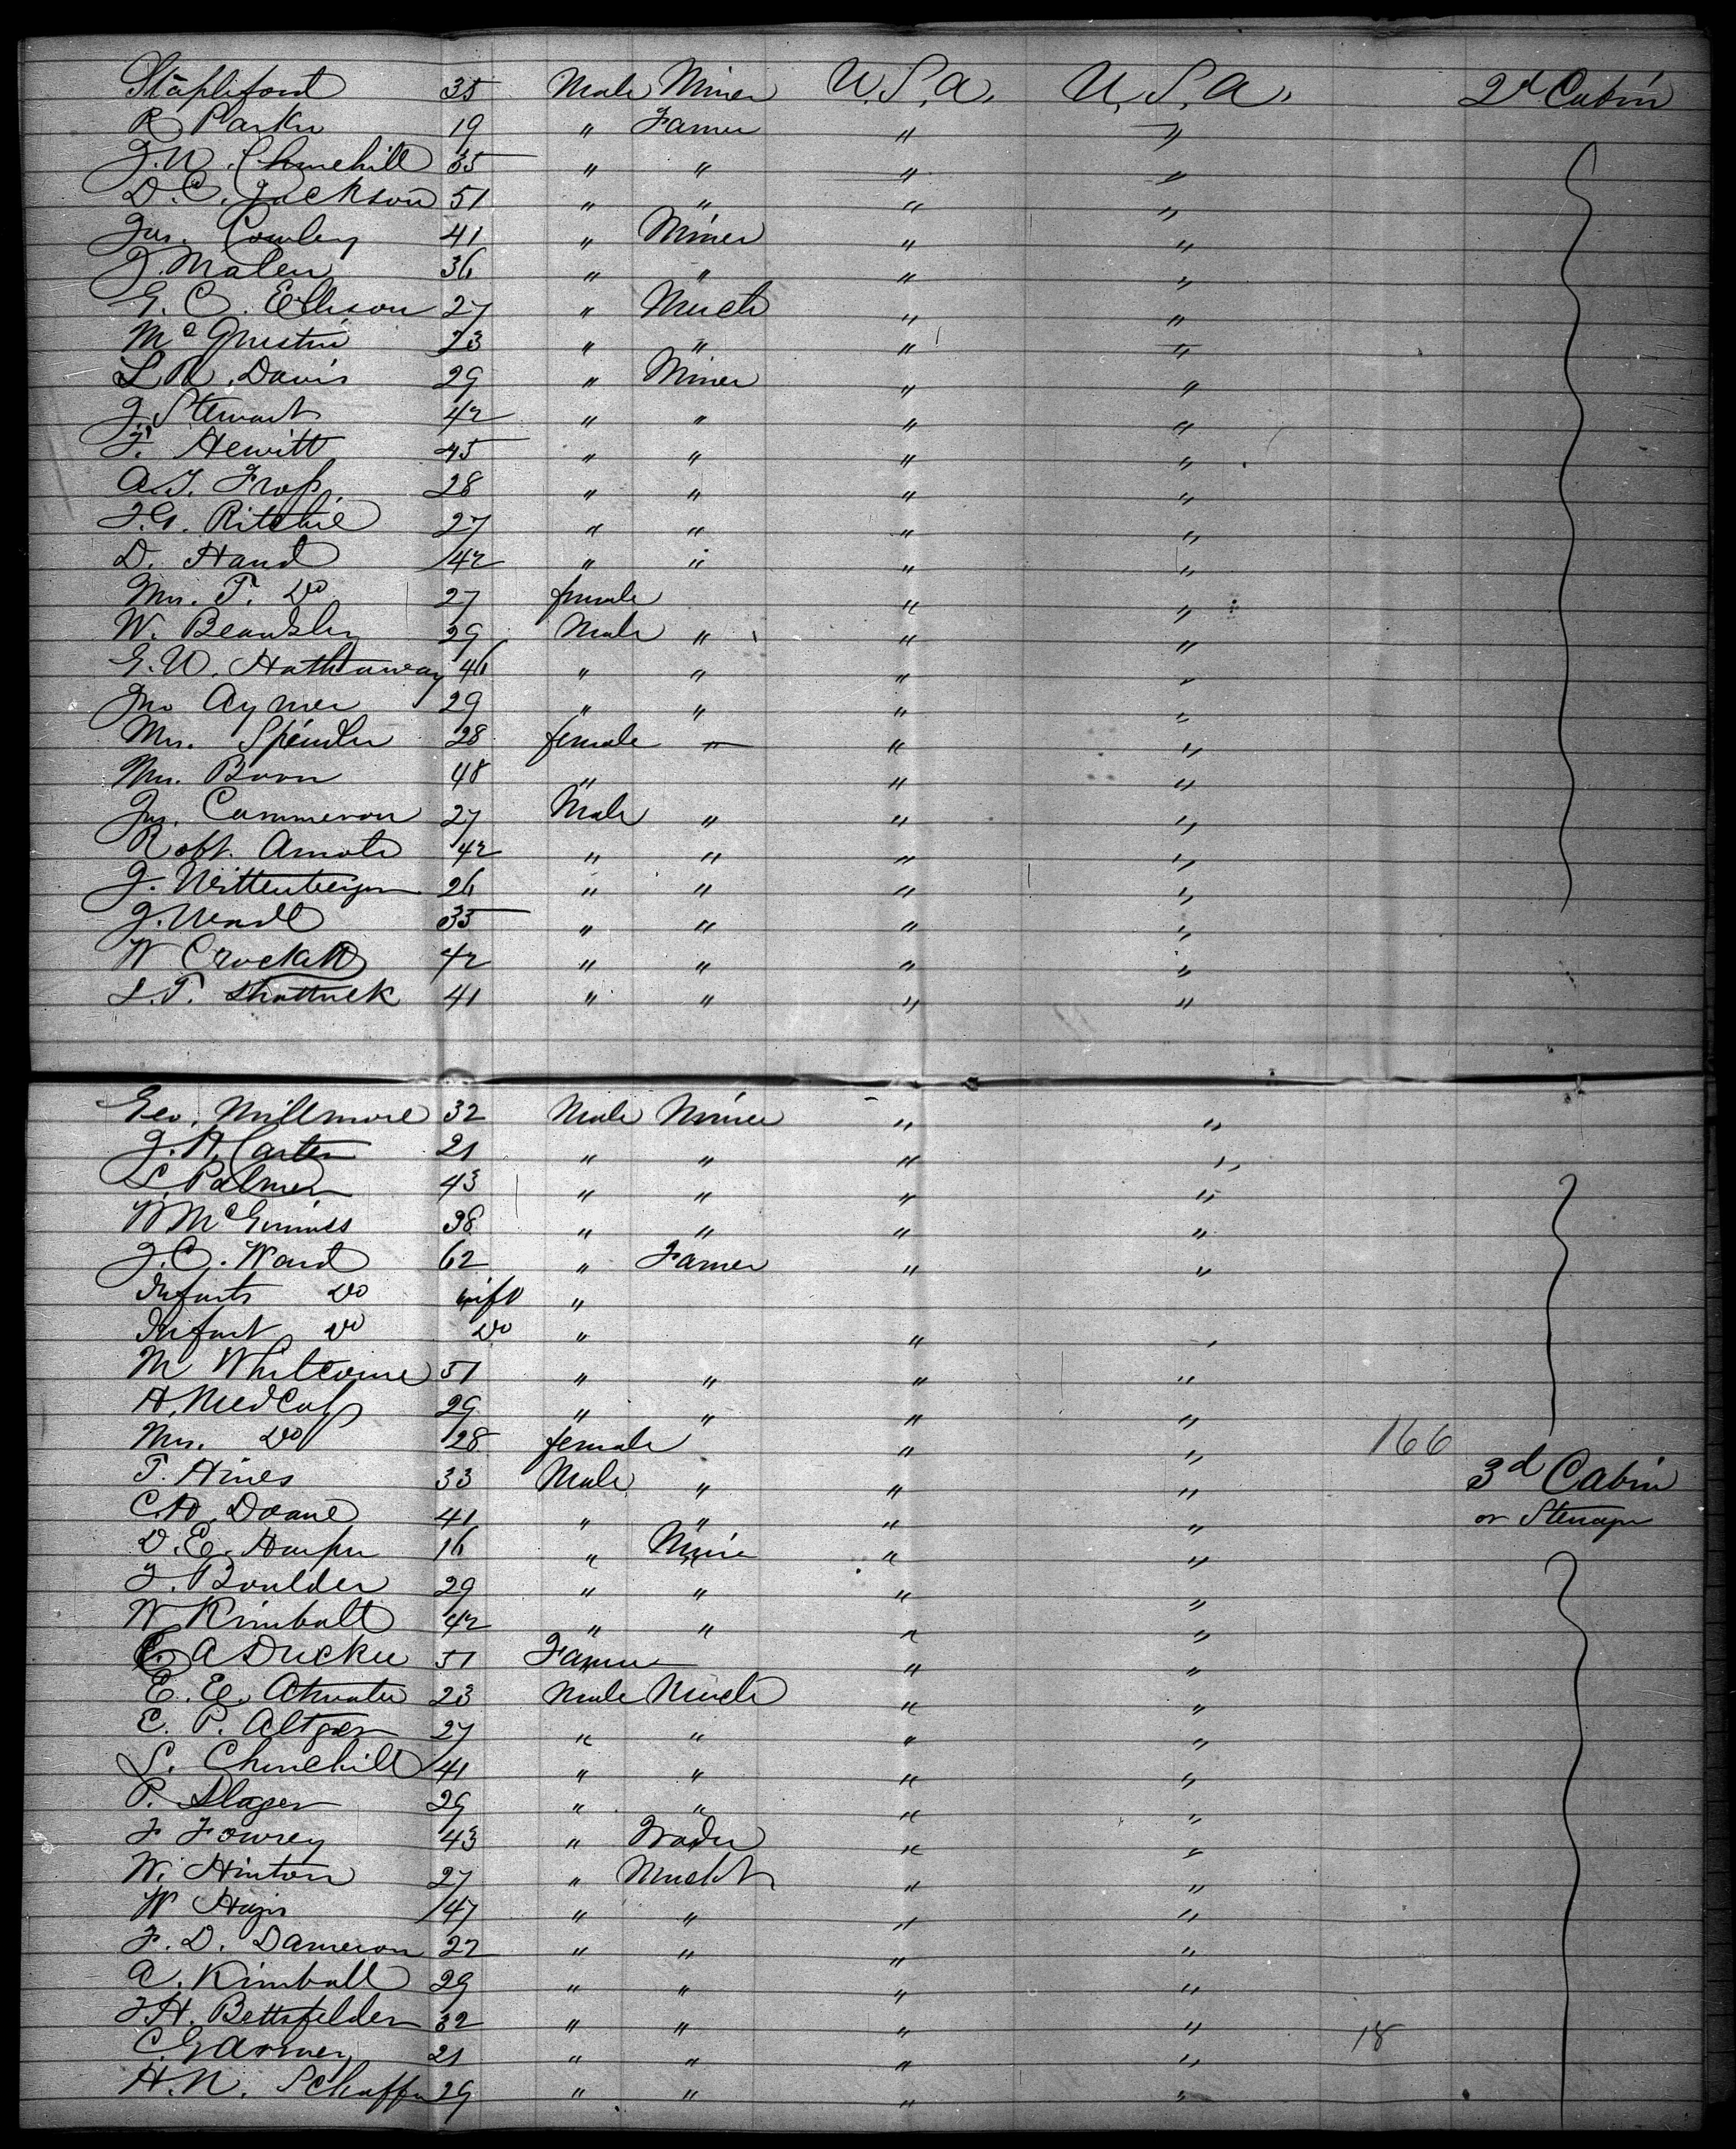 Stapliford 35 Male Miner U.S.A. U.S.A. 2d Cabin
R Parker 19 " Farmer " "
J.W. Churchill 35 " " " "
D.C. Jackson 51 " " " "
Jas. Cowley 41 " Miner " "
J. Malen 36 " " " "
G. C. Ellison 27 " Mercht " "
Mc Questin 23 " " " "
L R. Davis 29 " Miner " "
J. Stewart 42 " " " "
F. Hewitt 45 " " " "
A.J. 28 " " " "
J.G. Ritchie 27 " " " "
D. Hand 42 " " " "
Mrs. T. Do 27 female " "
W. Beardsley 29 Male " " "
G.W. Hathaway 46 " " " "
Jno Aymer 29 " " " "
Mrs. Spencler 28 female " " "
Mrs. Boon 48 " " "
Jas. Cammeron 27 Male " " "
Robt. Arnott 42 " " " "
J. Wittenberger 26 " " " "
J. 35 " " " "
W Crockett 42 " " " "
L.T. Shattuck 41 " " " "
Geo. Millmore 32 Male Miner " "
J.A. Carter 21 " " " "
S. Palmer 43 " " " "
W McGinniss 38 " " " "
J.C. Ward 62 " Farmer " "
Infants Do inft "
Infant Do Do " " "
M Whitcome 51 " " " "
A. Medcalf 29 " " " "
Mrs. Do 28 female " " 166
T. Hines 33 Male " " " 3d Cabin
C.H. Doane 41 " " " " or Steerage
D.E. Harper 16 " Miner " "
J. Boulder 29 " " " "
W Kimball 42 " " " "
C. A Drucker 51 Farmer " "
E. E. Atwater 23 Male Mercht " "
E. P. Altger 27 " " " "
S. Churchill 41 " " " "
P. Slager 29 " " " "
F Fowrey 43 " Trader " "
W. Hinton 27 " Mercht " "
W Hays 47 " " " "
F. D. Dameron 22 " " " "
A. Kimball 29 " " " "
J.H. Bettsfelder 32 " " " " 18
C. Garmer 21 " " " "
H.N. Schaffer 29 " " " "